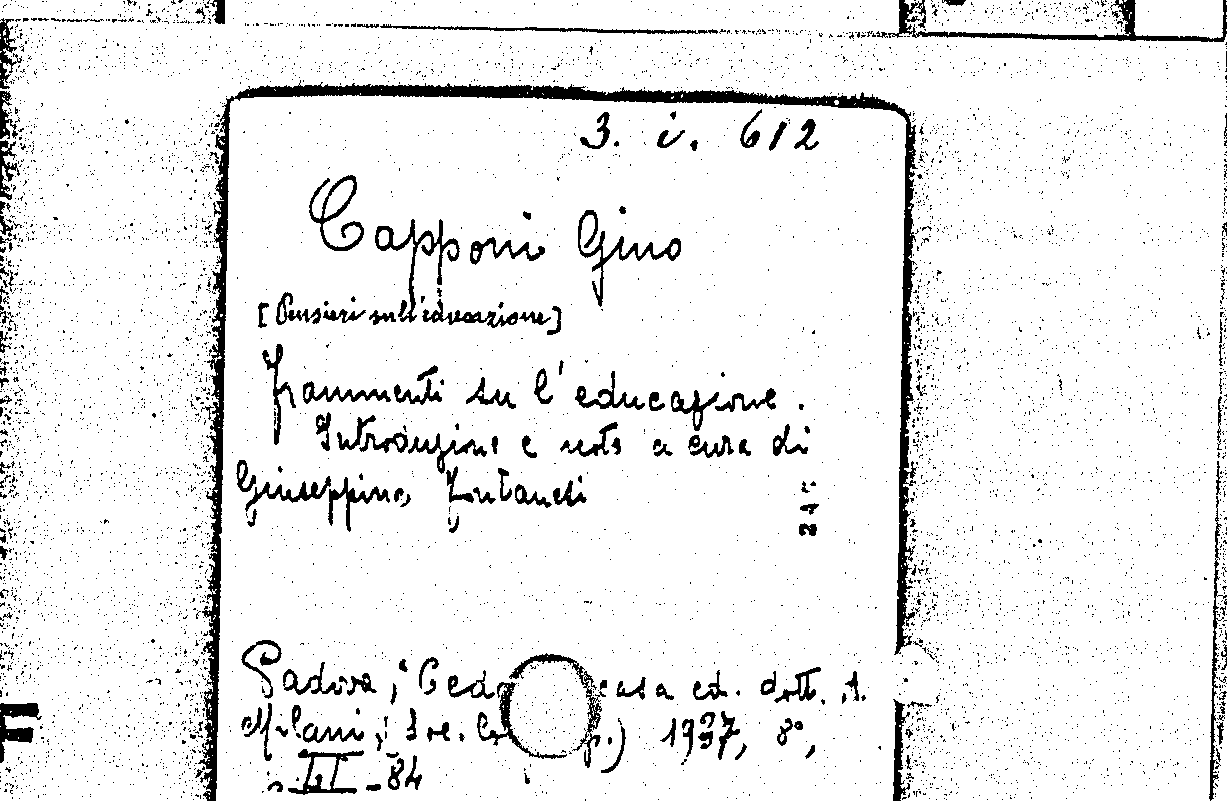 3. i. 612
Capponi Gino
[Pensieri sull'educazione]
Frammenti su l'educazione.
Introduzione e note a cura di
Giuseppina Fontanesi
Padova, "Ced casa ed. dott. A.
Milani, 1937, 8°,
-84